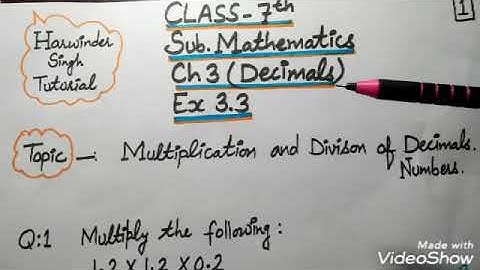 CLASS-7th
1
Harwinder
Singh
Tutorial
Sub. Mathematics
Ch 3 (Decimals)
Ex 3.3
Topic —: Multiplication and Divison of Decimals.
Numbers.
Q:1 Multiply the following:
1.2 X 1.2 X 0.2
Made with
VideoShow